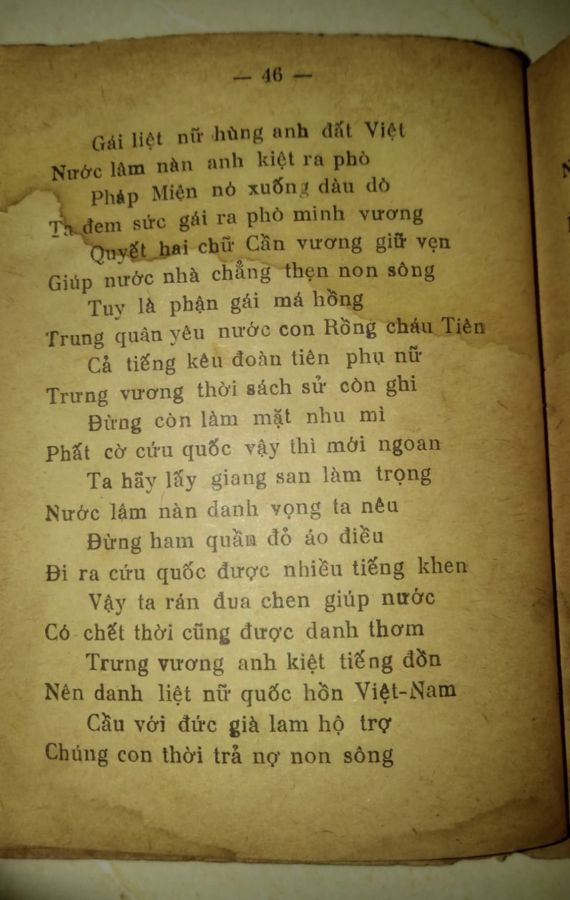 — 46 —
Gái liệt nữ hùng anh đất Việt
Nước lâm nàn anh kiệt ra phò
Pháp Miện nó xuống dàu dò
Ta đem sức gái ra phò minh vương
Quyết hai chữ Cần vương giữ vẹn
Giúp nước nhà chẳng thẹn non sông
Tuy là phận gái má hồng
Trung quân yêu nước con Rồng cháu Tiên
Cả tiếng kêu đoàn tiên phụ nữ
Trưng vương thời sách sử còn ghi
Đừng còn làm mặt nhu mì
Phất cờ cứu quốc vậy thì mới ngoan
Ta hãy lấy giang san làm trọng
Nước lâm nàn danh vọng ta nêu
Đừng ham quần đỏ áo điều
Đi ra cứu quốc được nhiều tiếng khen
Vậy ta rán đua chen giúp nước
Có chết thời cũng được danh thơm
Trưng vương anh kiệt tiếng đồn
Nên danh liệt nữ quốc hồn Việt-Nam
Cầu với đức già lam hộ trợ
Chúng con thời trả nợ non sông